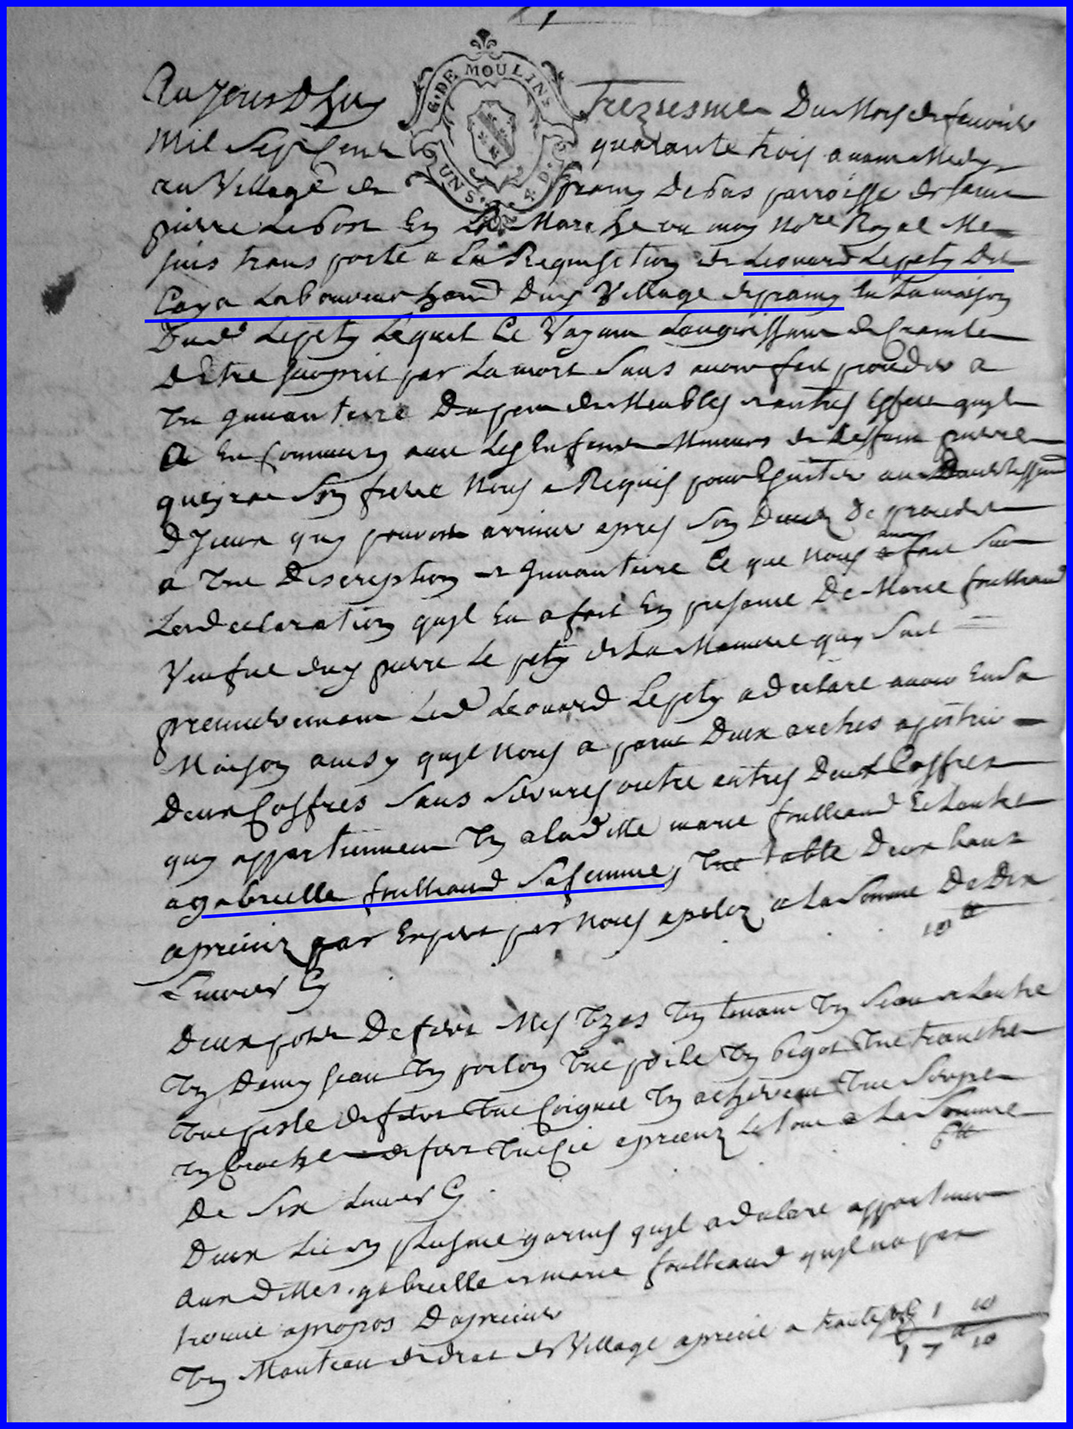 G. DE MOULINS
UN S. 4 D.
Aujourdhuy treziesme Du Mois de fevrier
Mil Sept Cent quarante trois avant Midy
au Village de pramy Debas parroisse de saint
pierre Lebost En La Marche ou moy No.re Royal Me
suis transporte a La Requisition de Leonard Lepety Du
Laboureur Duy Village de pramy En La maison
Dud Lepety Lequel Ce Voyant Languissant de Crainte
D Etre surprit par La mort Sans avoir fait proceder a
Un Quvantaire Du peu de Meubles et autres Effets quyl
A En Commun avec Les Enfents Mineurs de Deffunt pierre
Son frere Nous a Requis pour Esviter aux
D yceux quy pouroit arriver apres Son Deces De proceder
a Une Description et Quvantaire Ce que Nous avons fait Sur
La declaration quyl En a fait En presance De Marie foulhaud
Veufve duy pierre Le pety de La Maniere quy Suit
premierement Led Leonard Lepety a declare avoir En Sa
Maison ainsy quyl Nous a parut Deux arches
Deux Coffres Sans Serrures outre autres Deux Coffres
quy appartiennent Un a laditte marie foulhaud Et Lautre
a gabrielle foulhaud Sa femme, Une table Deux bancs
apreciez par Expert par Nous apelez a La Somme De Dix
Livres Cy 10 tt
Deux pots De fert Mes Uzes Un tenant Un Seau et Lautre
Un Demy Seau Un poelon Une poile Un bigot Une tranche
Une pesle de fer Une Coignee Un Une Serpe
Un de fer Une Cie apreciez Le tout a La Somme
De Six Livres Cy 6 tt
Deux Lis En plusme garnis quyl a declare appartenir
aux Dittes gabrielle et marie foulhaud quyl na pas
trouve apropos D aprecier
Un Manteau de drat de Village aprecie a trante sols 1 10
17 tt 10